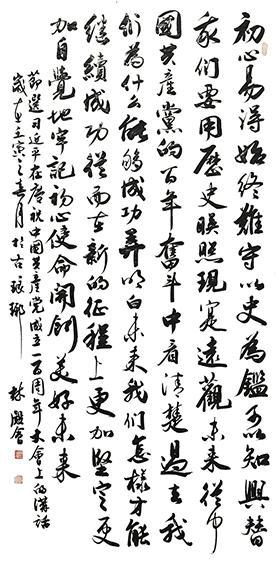 初心易得始终難守以史為鑑可以知興替
我们要用歷史映照現寔遠觀未来從中
國共產黨的百年奮斗中看清楚過去我
们為什么能够成功弄明白未来我们怎樣才能
继續成功從而在新的征程上更加堅定更
加自覺地牢記初心使命開創美好未来
節選习近平在庆祝中國共產党成立一百周年大會上的講話
歲在壬寅之春月於古琅琊 林